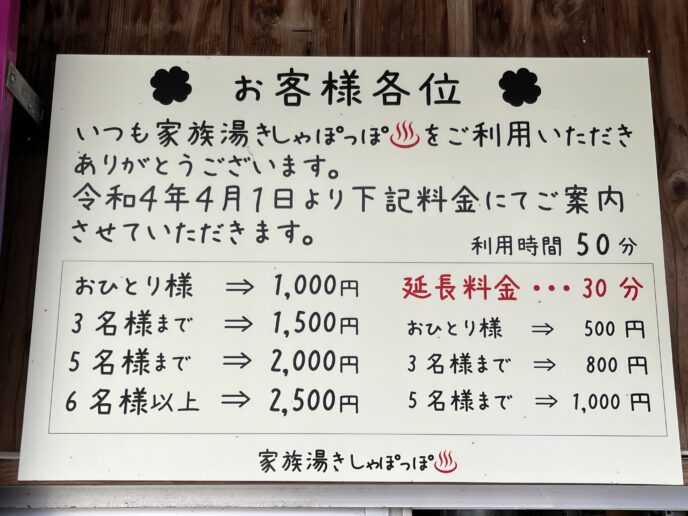 お客様各位
いつも家族湯きしゃぽっぽ♨をご利用いただき
ありがとうございます。
令和4年4月1日より下記料金にてご案内
させていただきます。
利用時間 50分
おひとり様 ⇒ 1,000円
3名様まで ⇒ 1,500円
5名様まで ⇒ 2,000円
6名様以上 ⇒ 2,500円
延長料金・・・30分
おひとり様 ⇒ 500円
3名様まで ⇒ 800円
5名様まで ⇒ 1,000円
家族湯きしゃぽっぽ♨